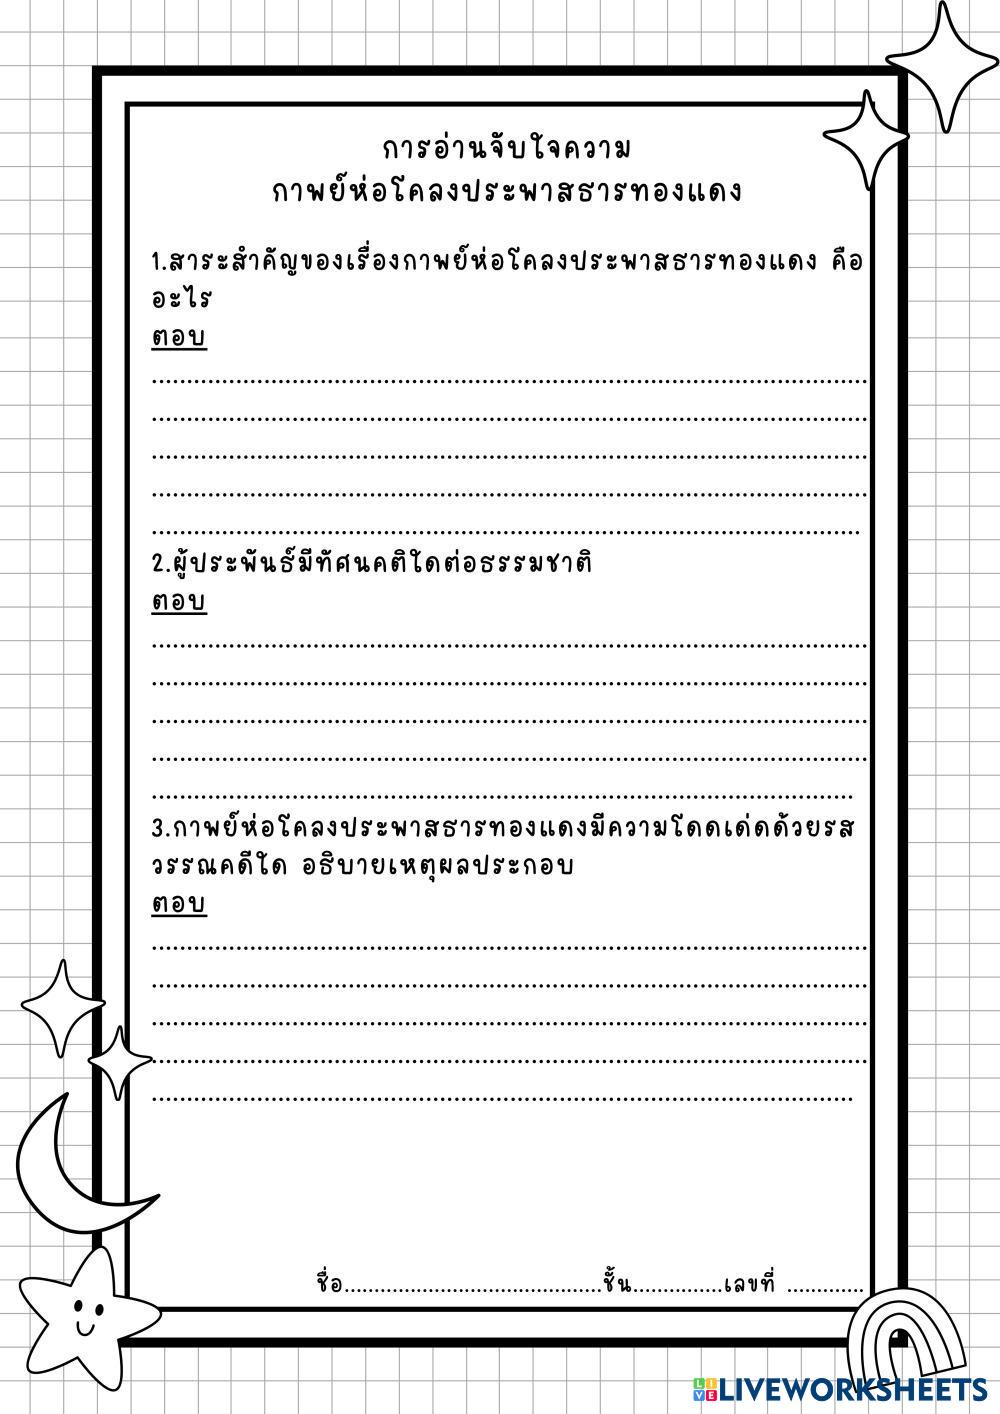 การอ่านจับใจความ
กาพย์ห่อโคลงประพาสธารทองแดง
1.สาระสำคัญของเรื่องกาพย์ห่อโคลงประพาสธารทองแดง คือ
อะไร
ตอบ
2.ผู้ประพันธ์มีทัศนคติใดต่อธรรมชาติ
ตอบ
3.กาพย์ห่อโคลงประพาสธารทองแดงมีความโดดเด่ดด้วยรส
วรรณคดีใด อธิบายเหตุผลประกอบ
ตอบ
ชื่อ..........................................ชั้น...............เลขที่ ............
LIVEWORKSHEETS